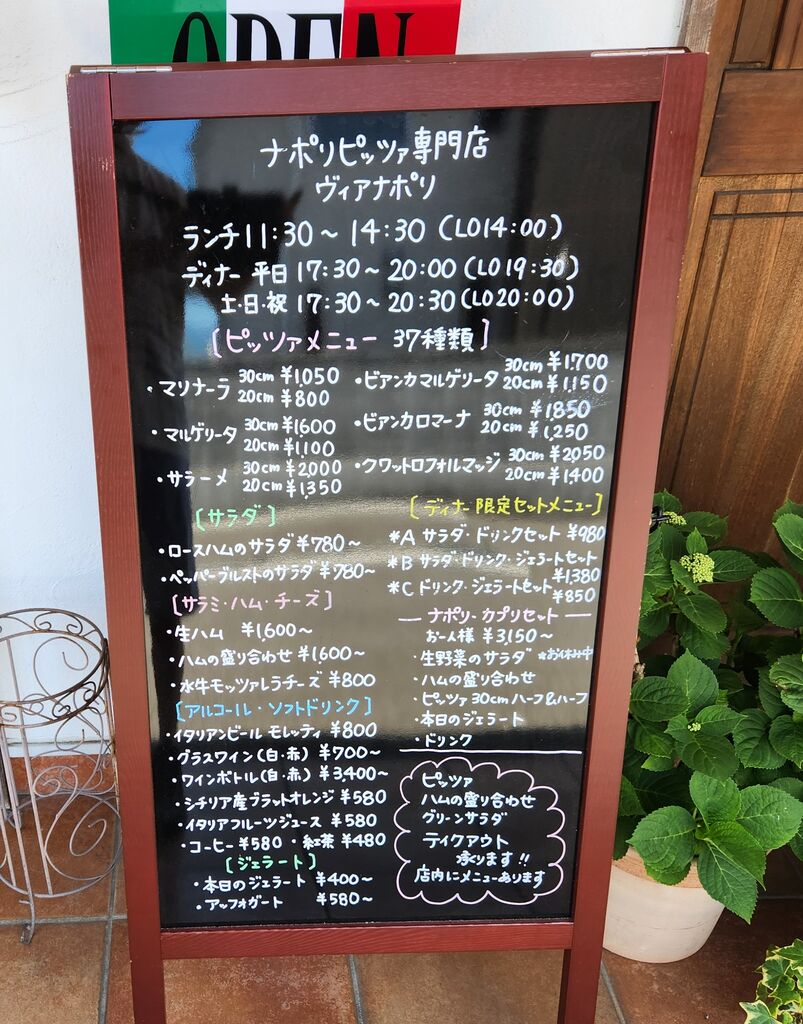 OPEN
ナポリピッツァ専門店
ヴィアナポリ
ランチ 11:30～14:30 (LO14:00)
ディナー 平日 17:30～20:00 (LO19:30)
土・日・祝 17:30～20:30 (LO20:00)
[ピッツァメニュー 37種類]
・マリナーラ 30cm ¥1,050
20cm ¥800
・マルゲリータ 30cm ¥1,600
20cm ¥1,100
・サラーメ 30cm ¥2,000
20cm ¥1,350
・ビアンカマルゲリータ 30cm ¥1,700
20cm ¥1,150
・ビアンカロマーナ 30cm ¥1,850
20cm ¥1,250
・クワットロフォルマッジ 30cm ¥2,050
20cm ¥1,400
[サラダ]
・ロースハムのサラダ ¥780～
・ペッパーブルストのサラダ ¥780～
[サラミ・ハム・チーズ]
・生ハム ¥1,600～
・ハムの盛り合わせ ¥1,600～
・水牛モッツァレラチーズ ¥800
[アルコール・ソフトドリンク]
・イタリアンビール モレッティ ¥800
・グラスワイン(白・赤) ¥700～
・ワインボトル(白・赤) ¥3,400～
・シチリア産ブラットオレンジ ¥580
・イタリアフルーツジュース ¥580
・コーヒー ¥580 ・紅茶 ¥480
[ジェラート]
・本日のジェラート ¥400～
・アッフォガート ¥580～
[ディナー限定セットメニュー]
*A サラダ・ドリンクセット ¥980
*B サラダ・ドリンク・ジェラートセット
¥1,380
*C ドリンク・ジェラートセット ¥850
ナポリ・カプリセット
お一人様 ¥3,150～
・生野菜のサラダ *お休み中
・ハムの盛り合わせ
・ピッツァ30cmハーフ&ハーフ
・本日のジェラート
・ドリンク
ピッツァ
ハムの盛り合わせ
グリーンサラダ
テイクアウト
承ります!!
店内にメニューあります